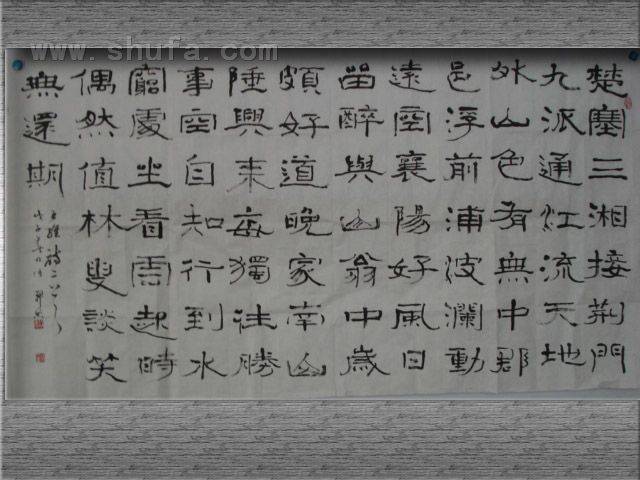 www.shufa.com
楚塞三湘接荆門
九派通江流天地
外山色有無中郡
邑浮前浦波瀾動
遠空襄陽好風日
留醉與山翁中歲
頗好道晚家南山
陲興来每獨往勝
事空自知行到水
窮處坐看雲起時
偶然值林叟談笑
無還期
王維詩二首
戊子